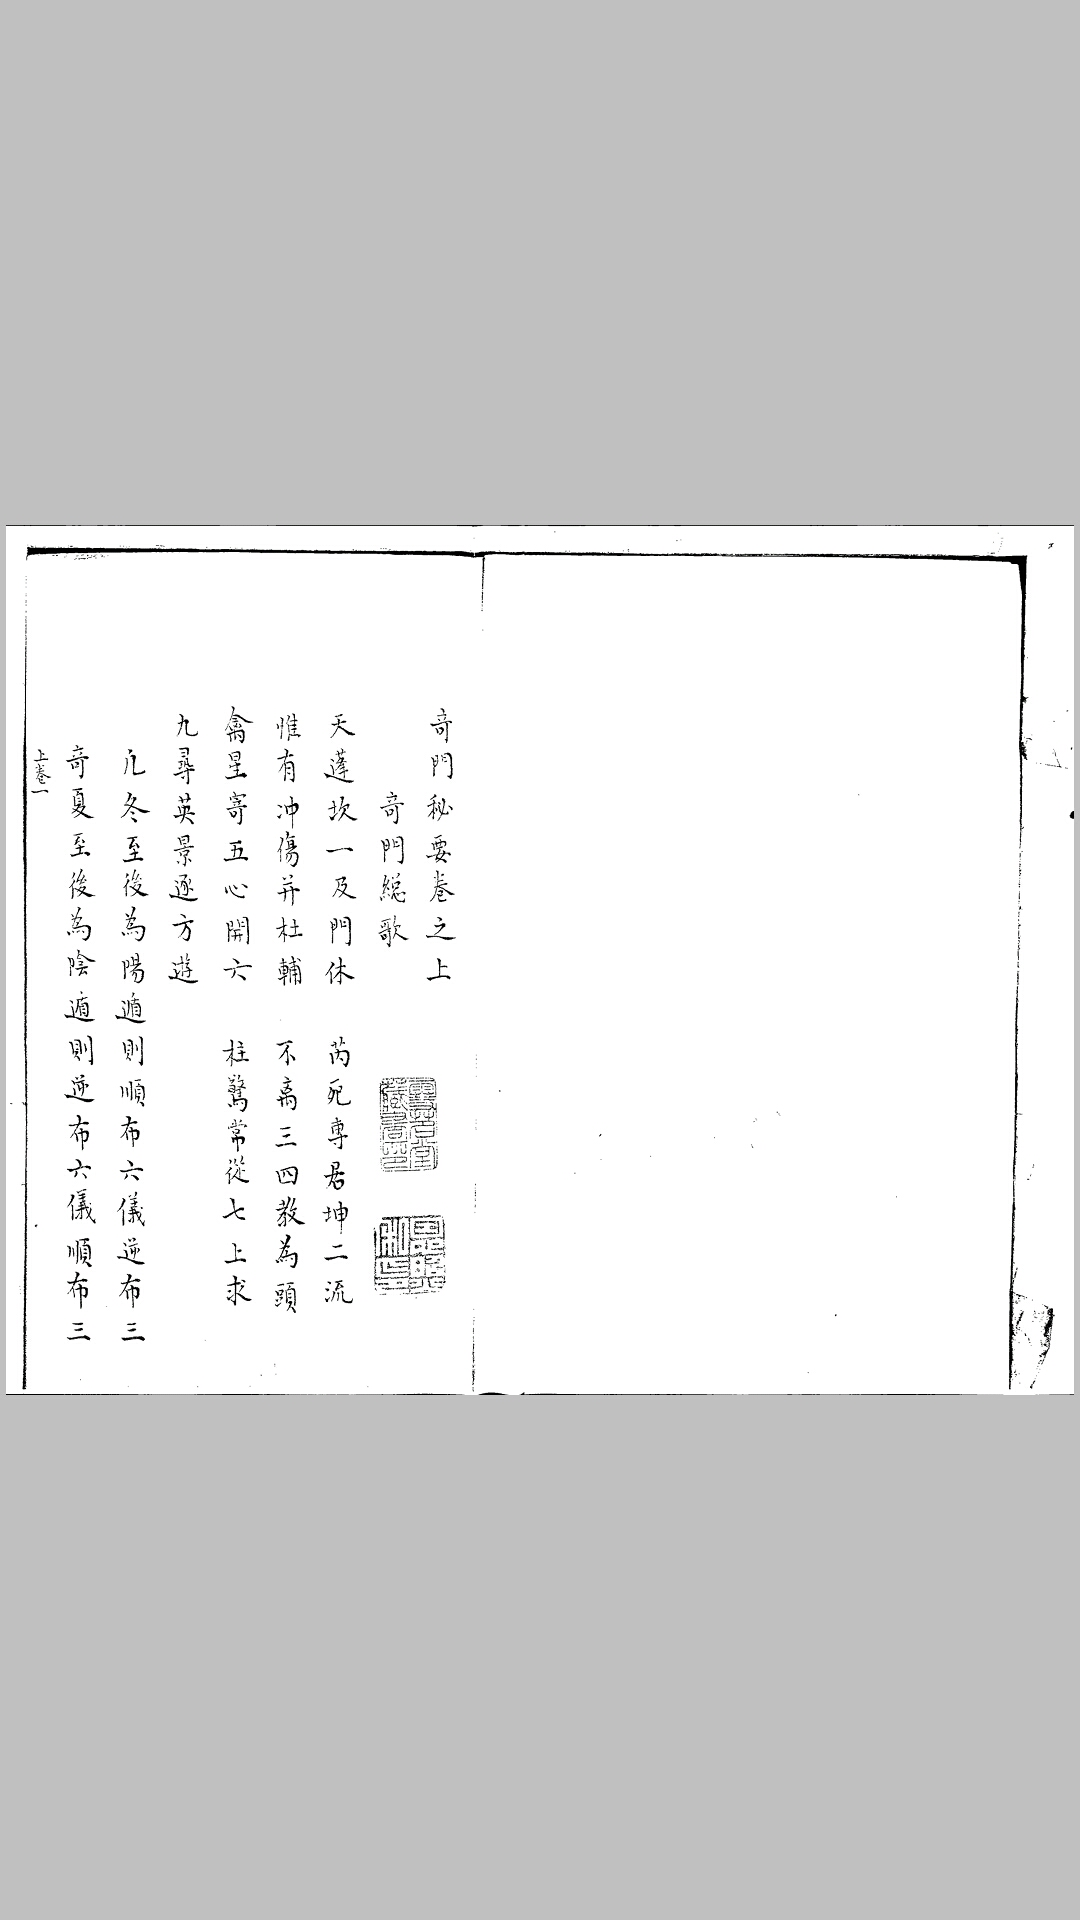 奇門秘要卷之上
奇門総歌
天蓬坎一及門休 芮死專居坤二流
惟有冲傷并杜輔 不离三四教為頭
禽星寄五心開六 柱驚常從七上求
九尋英景逐方遊
凢冬至後為陽遁則順布六儀逆布三
奇夏至後為陰遁則逆布六儀順布三
上卷一